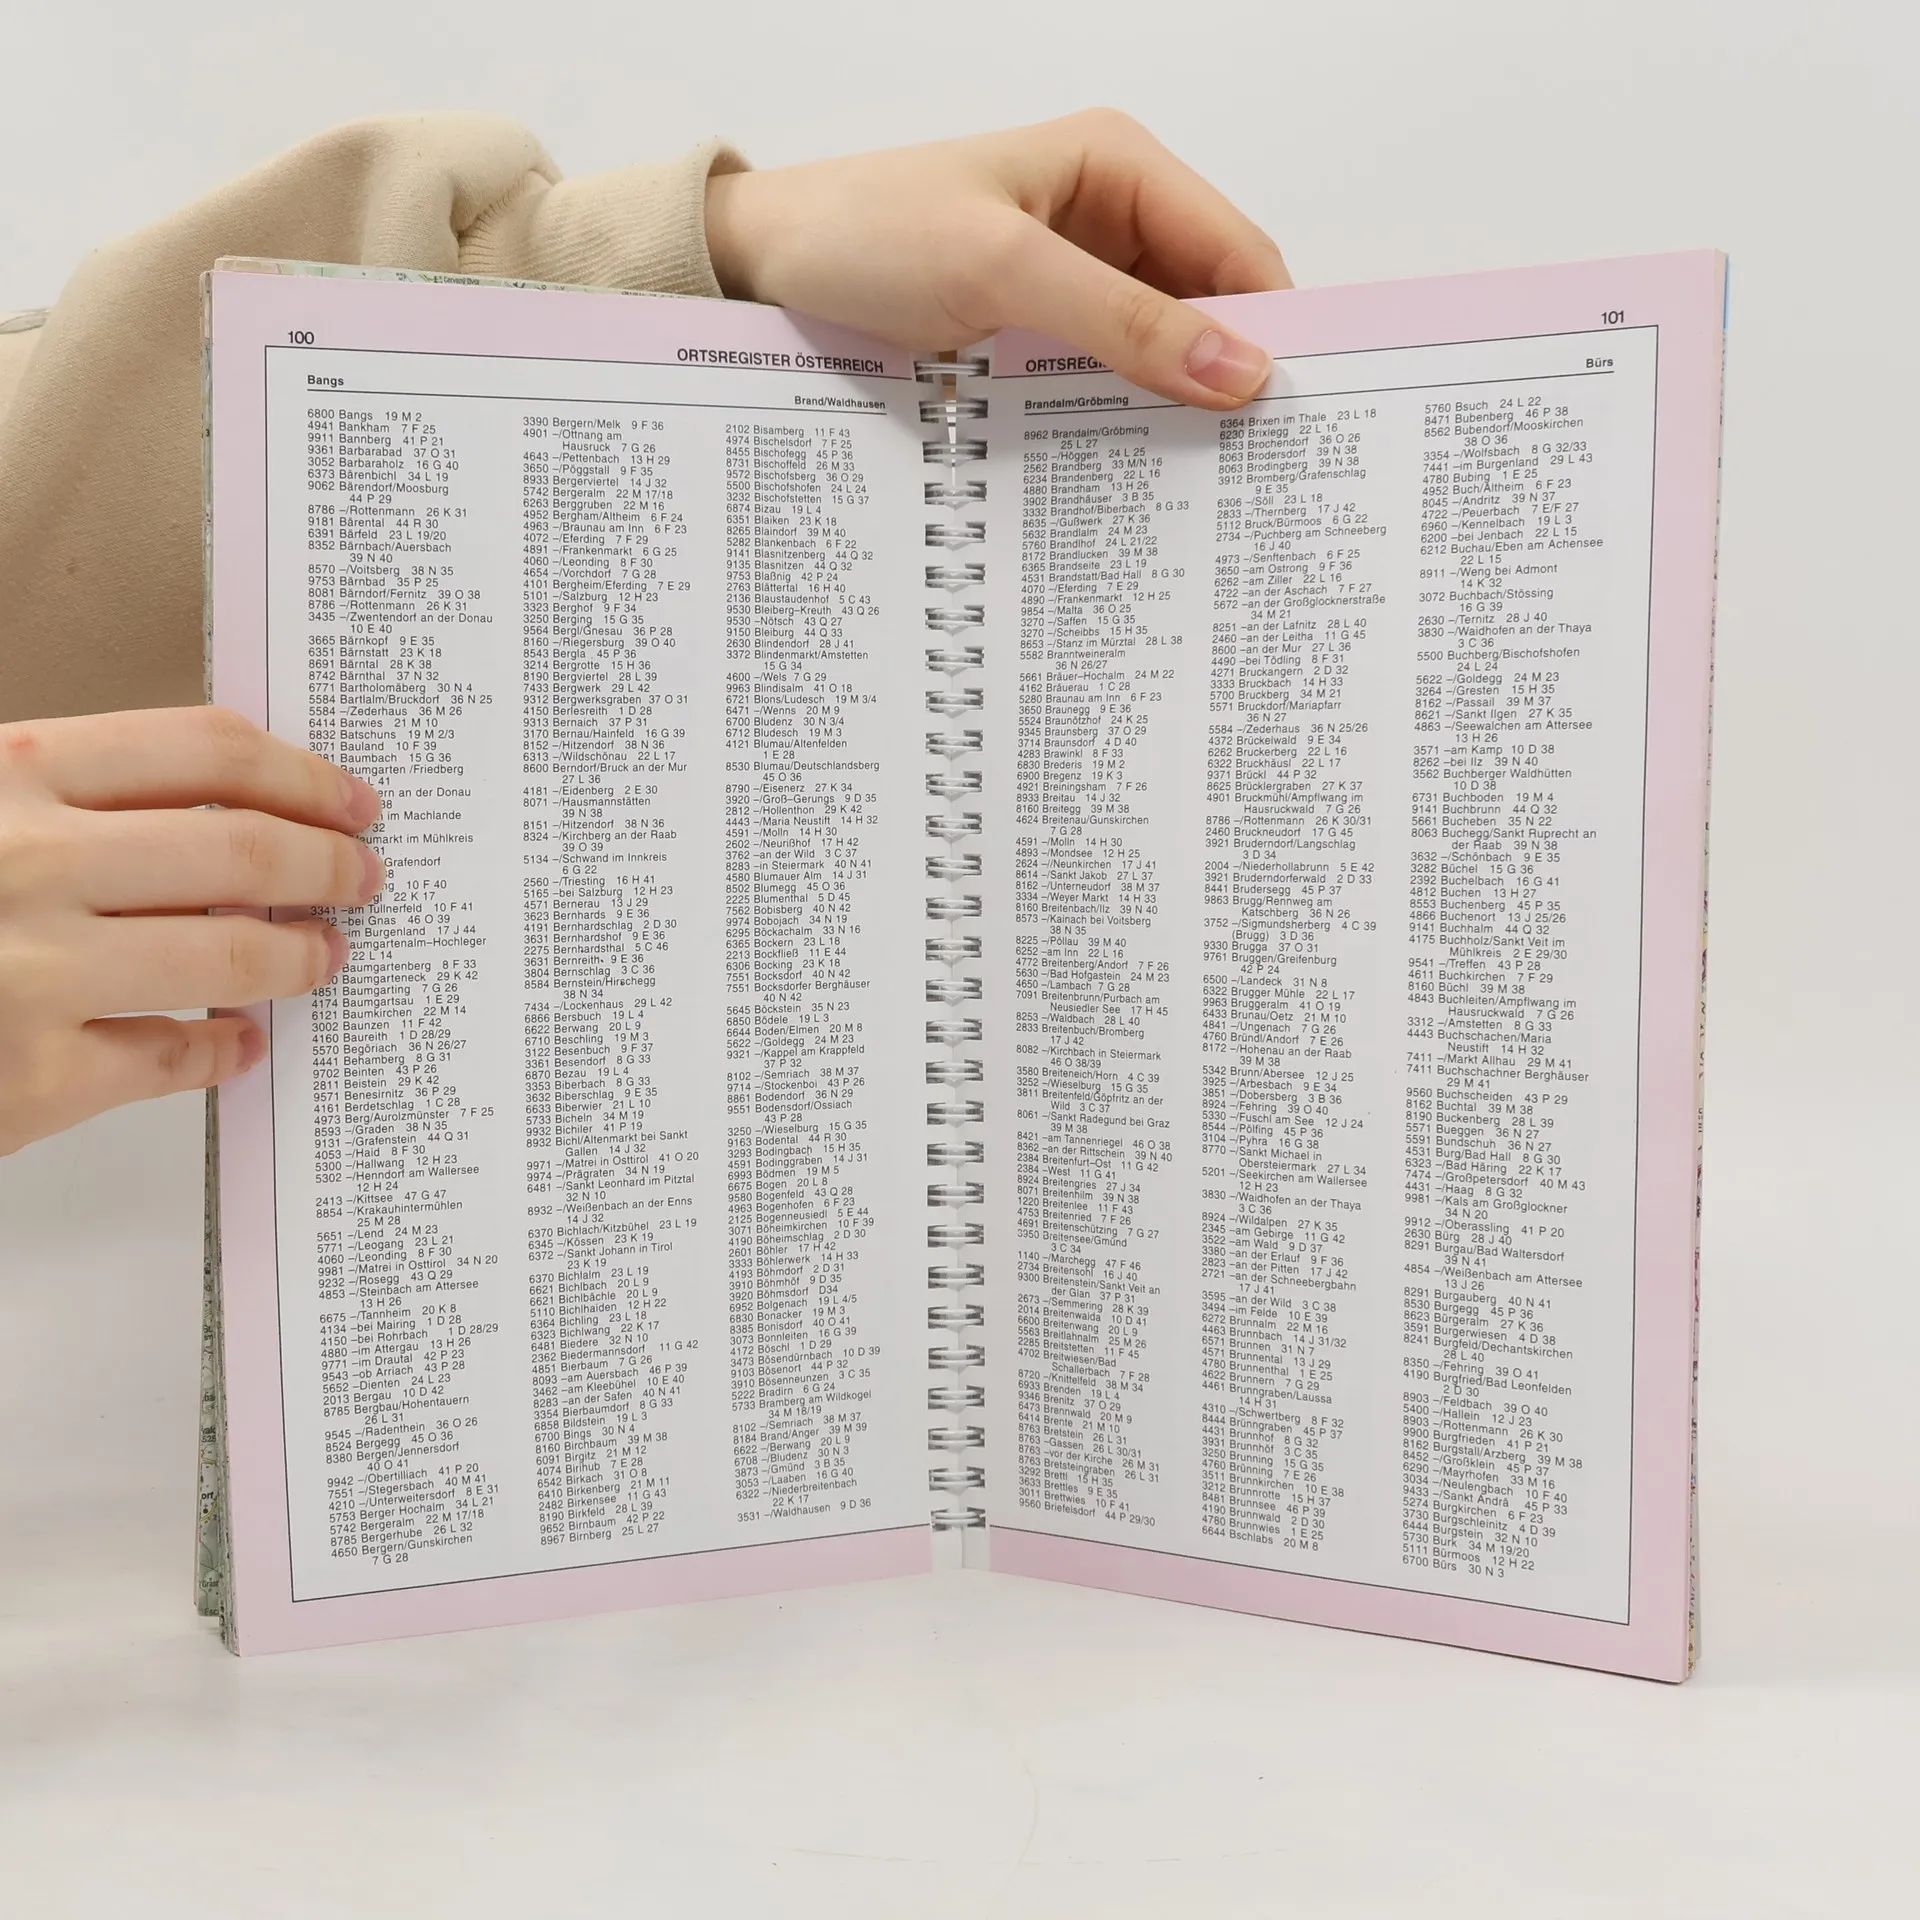 100
ORTSREGISTER ÖSTERREICH
Bangs
Brand/Waldhausen
6800 Bangs 19 M 2
4941 Bankham 7 F 25
9911 Bannberg 41 P 21
9361 Barbarabad 37 O 31
3052 Barbaraholz 16 G 40
6373 Bärenbichl 34 L 19
9062 Bärendorf/Moosburg
44 P 29
8786 –/Rottenmann 26 K 31
9181 Bärental 44 R 30
6391 Bärfeld 23 L 19/20
8352 Bärnbach/Auersbach
39 N 40
8570 –/Voitsberg 38 N 35
9753 Bärnbad 35 P 25
8081 Bärndorf/Fernitz 39 O 38
8786 –/Rottenmann 26 K 31
3435 –/Zwentendorf an der Donau
10 E 40
3665 Bärnkopf 9 E 35
6351 Bärnstatt 23 K 18
8691 Bärntal 28 K 38
8742 Bärnthal 37 N 32
6771 Bartholomäberg 30 N 4
5584 Bartlalm/Bruckdorf 36 N 25
5584 –/Zederhaus 36 M 26
6414 Barwies 21 M 10
6832 Batschuns 19 M 2/3
3071 Bauland 10 F 39
81 Baumbach 15 G 36
Baumgarten /Friedberg
L 41
ern an der Donau
38
im Machlande
32
eumarkt im Mühlkreis
31
Grafendorf
8
ng 10 F 40
gl 22 K 17
3341 –am Tullnerfeld 10 F 41
42 –bei Gnas 46 O 39
–im Burgenland 17 J 44
aumgartenalm–Hochleger
22 L 14
Baumgartenberg 8 F 33
0 Baumgarteneck 29 K 42
4851 Baumgarting 7 G 26
4174 Baumgartsau 1 E 29
6121 Baumkirchen 22 M 14
3002 Baunzen 11 F 42
4160 Baureith 1 D 28/29
5570 Begöriach 36 N 26/27
4441 Behamberg 8 G 31
9702 Beinten 43 P 26
2811 Beistein 29 K 42
9571 Benesirnitz 36 P 29
4161 Berdetschlag 1 C 28
4973 Berg/Aurolzmünster 7 F 25
8593 –/Graden 38 N 35
9131 –/Grafenstein 44 Q 31
4053 –/Haid 8 F 30
5300 –/Hallwang 12 H 23
5302 –/Henndorf am Wallersee
12 H 24
2413 –/Kittsee 47 G 47
8854 –/Krakauhintermühlen
25 M 28
5651 –/Lend 24 M 23
5771 –/Leogang 23 L 21
4060 –/Leonding 8 F 30
9981 –/Matrei in Osttirol 34 N 20
9232 –/Rosegg 43 Q 29
4853 –/Steinbach am Attersee
13 H 26
6675 –/Tannheim 20 K 8
4134 –bei Mairing 1 D 28
4150 –bei Rohrbach 1 D 28/29
4880 –im Attergau 13 H 26
9771 –im Drautal 42 P 23
9543 –ob Arriach 43 P 28
5652 –Dienten 24 L 23
2013 Bergau 10 D 42
8785 Bergbau/Hohentauern
26 L 31
9545 –/Radenthein 36 O 26
8524 Bergegg 45 O 36
8380 Bergen/Jennersdorf
40 O 41
9942 –/Obertilliach 41 P 20
7551 –/Stegersbach 40 M 41
4210 –/Unterweitersdorf 8 E 31
5753 Berger Hochalm 34 L 21
5742 Bergeralm 22 M 17/18
8785 Bergerhube 26 L 32
4650 Bergern/Gunskirchen
7 G 28
3390 Bergern/Melk 9 F 36
4901 –/Ottnang am
Hausruck 7 G 26
4643 –/Pettenbach 13 H 29
3650 –/Pöggstall 9 F 35
8933 Bergerviertel 14 J 32
5742 Bergeralm 22 M 17/18
6263 Berggruben 22 M 16
4952 Bergham/Altheim 6 F 24
4963 –/Braunau am Inn 6 F 23
4072 –/Eferding 7 F 29
4891 –/Frankenmarkt 6 G 25
4060 –/Leonding 8 F 30
4654 –/Vorchdorf 7 G 28
4101 Bergheim/Eferding 7 E 29
5101 –/Salzburg 12 H 23
3323 Berghof 9 F 34
3250 Berging 15 G 35
9564 Bergl/Gnesau 36 P 28
8160 –/Riegersburg 39 O 40
8543 Bergla 45 P 36
3214 Bergrotte 15 H 36
8190 Bergviertel 28 L 39
7433 Bergwerk 29 L 42
9312 Bergwerksgraben 37 O 31
4150 Berlesreith 1 D 28
9313 Bernaich 37 P 31
3170 Bernau/Hainfeld 16 G 39
8152 –/Hitzendorf 38 N 36
6313 –/Wildschönau 22 L 17
8600 Berndorf/Bruck an der Mur
27 L 36
4181 –/Eidenberg 2 E 30
8071 –/Hausmannstätten
39 N 38
8151 –/Hitzendorf 38 N 36
8324 –/Kirchberg an der Raab
39 O 39
5134 –/Schwand im Innkreis
6 G 22
2560 –/Triesting 16 H 41
5165 –bei Salzburg 12 H 23
4571 Bernerau 13 J 29
3623 Bernhards 9 E 36
4191 Bernhardschlag 2 D 30
3631 Bernhardshof 9 E 36
2275 Bernhardsthal 5 C 46
3631 Bernreith 9 E 36
3804 Bernschlag 3 C 36
8584 Bernstein/Hirschegg
38 N 34
7434 –/Lockenhaus 29 L 42
6866 Bersbuch 19 L 4
6622 Berwang 20 L 9
6710 Beschling 19 M 3
3122 Besenbuch 9 F 37
3361 Besendorf 8 G 33
6870 Bezau 19 L 4
3353 Biberbach 8 G 33
3632 Biberschlag 9 E 35
6633 Biberwier 21 L 10
5733 Bicheln 34 M 19
9932 Bichler 41 P 19
8932 Bichl/Altenmarkt bei Sankt
Gallen 14 J 32
9971 –/Matrei in Osttirol 41 O 20
9974 –/Prägraten 34 N 19
6481 –/Sankt Leonhard im Pitztal
32 N 10
8932 –/Weißenbach an der Enns
14 J 32
6370 Bichlach/Kitzbühel 23 L 19
6345 –/Kössen 23 K 19
6372 –/Sankt Johann in Tirol
23 K 19
6370 Bichlalm 23 L 19
6621 Bichlbach 20 L 9
6621 Bichlbächle 20 L 9
5110 Bichlhaiden 12 H 22
6364 Bichling 23 L 18
6323 Bichlwang 22 K 17
6481 Biedere 32 N 10
2362 Biedermannsdorf 11 G 42
4851 Bierbaum 7 G 26
8093 –am Auersbach 46 P 39
3462 –am Kleebühel 10 E 40
8283 –an der Safen 40 N 41
3354 Bierbaumdorf 8 G 33
6858 Bildstein 19 L 3
6700 Bings 30 N 4
8160 Birchbaum 39 M 38
6091 Birgitz 21 M 12
4074 Birihub 7 E 28
6542 Birkach 31 O 8
6410 Birkenberg 21 M 11
2482 Birkensee 11 G 43
8190 Birkfeld 28 L 39
9652 Birnbaum 42 P 22
8967 Birnberg 25 L 27
2102 Bisamberg 11 F 43
4974 Bischelsdorf 7 F 25
8455 Bischofegg 45 P 36
8731 Bischoffeld 26 M 33
9572 Bischofsberg 36 O 29
5500 Bischofshofen 24 L 24
3232 Bischofstetten 15 G 37
6874 Bizau 19 L 4
6351 Blaiken 23 K 18
8265 Blaindorf 39 M 40
5282 Blankenbach 6 F 22
9141 Blasnitzenberg 44 Q 32
9135 Blasnitzen 44 Q 32
9753 Blaßnig 42 P 24
2763 Blättertal 16 H 40
2136 Blaustaudenhof 5 C 43
9530 Bleiberg–Kreuth 43 Q 26
9530 –Nötsch 43 Q 27
9150 Bleiburg 44 Q 33
2630 Blindendorf 28 J 41
3372 Blindenmarkt/Amstetten
15 G 34
4600 –/Wels 7 G 29
9963 Blindisalm 41 O 18
6721 Blons/Ludesch 19 M 3/4
6471 –/Wenns 20 M 9
6700 Bludenz 30 N 3/4
6712 Bludesch 19 M 3
4121 Blumau/Altenfelden
1 E 28
8530 Blumau/Deutschlandsberg
45 O 36
8790 –/Eisenerz 27 K 34
3920 –/Groß–Gerungs 9 D 35
2812 –/Hollenthon 29 K 42
4443 –/Maria Neustift 14 H 32
4591 –/Molln 14 H 30
2602 –/Neurißhof 17 H 42
3762 –an der Wild 3 C 37
8283 –in Steiermark 40 N 41
4580 Blumauer Alm 14 J 31
8502 Blumegg 45 O 36
2225 Blumenthal 5 D 45
7562 Bobisberg 40 N 42
9974 Bobojach 34 N 19
6295 Böckachalm 33 N 16
6365 Bockern 23 L 18
2213 Bockfließ 11 E 44
6306 Bocking 23 K 18
7551 Bocksdorf 40 N 42
7551 Bocksdorfer Berghäuser
40 N 42
5645 Böckstein 35 N 23
6850 Bödele 19 L 3
6644 Boden/Elmen 20 M 8
5622 –/Goldegg 24 M 23
9321 –/Kappel am Krappfeld
37 P 32
8102 –/Semriach 38 M 37
9714 –/Stockenboi 43 P 26
8861 Bodendorf 36 N 29
9551 Bodensdorf/Ossiach
43 P 28
3250 –/Wieselburg 15 G 35
9163 Bodental 44 R 30
3293 Bodingbach 15 H 35
4591 Bodinggraben 14 J 31
6993 Bödmen 19 M 5
6675 Bogen 20 L 8
9580 Bogenfeld 43 Q 28
4963 Bogenhofen 6 F 23
2125 Bogenneusiedl 5 E 44
3071 Böheimkirchen 10 F 39
4190 Böheimschlag 2 D 30
2601 Böhler 17 H 42
3333 Böhlerwerk 14 H 33
4193 Böhmdorf 2 D 31
3910 Böhmhöf 9 D 35
3920 Böhmsdorf D34
6952 Bolgenach 19 L 4/5
6830 Bonacker 19 M 3
8385 Bonisdorf 40 O 41
3073 Bonnleiten 16 G 39
4172 Böschl 1 D 29
3473 Bösendürnbach 10 D 39
9103 Bösenort 44 P 32
3910 Bösenneunzen 3 C 35
5222 Bradirn 6 G 24
5733 Bramberg am Wildkogel
34 M 18/19
8102 –/Semriach 38 M 37
8184 Brand/Anger 39 M 39
6622 –/Berwang 20 L 9
6708 –/Bludenz 30 N 3
3873 –/Gmünd 3 B 35
3053 –/Laaben 16 G 40
6322 –/Niederbreitenbach
22 K 17
3531 –/Waldhausen 9 D 36
101
ORTSREGI
Brandalm/Gröbming
Bürs
8962 Brandalm/Gröbming
25 L 27
5550 –/Höggen 24 L 25
2562 Brandberg 33 M/N 16
6234 Brandenberg 22 L 16
4880 Brandham 13 H 26
3902 Brandhäuser 3 B 35
3332 Brandhof/Biberbach 8 G 33
8635 –/Gußwerk 27 K 36
5632 Brandlalm 24 M 23
5760 Brandlhof 24 L 21/22
8172 Brandlucken 39 M 38
6365 Brandseite 23 L 19
4531 Brandstatt/Bad Hall 8 G 30
4070 –/Eferding 7 E 29
4890 –/Frankenmarkt 12 H 25
9854 –/Malta 36 O 25
3270 –/Saffen 15 G 35
3270 –/Scheibbs 15 H 35
8653 –/Stanz im Mürztal 28 L 38
5582 Branntweineralm
36 N 26/27
5661 Bräuer–Hochalm 24 M 22
4162 Bräuerau 1 C 28
5280 Braunau am Inn 6 F 23
3650 Braunegg 9 E 36
5524 Braunötzhof 24 K 25
9345 Braunsberg 37 O 29
3714 Braunsdorf 4 D 40
4283 Brawinkl 8 F 33
6830 Brederis 19 M 2
6900 Bregenz 19 K 3
4921 Breiningsham 7 F 26
8933 Breitau 14 J 32
8160 Breitegg 39 M 38
4624 Breitenau/Gunskirchen
7 G 28
4591 –/Molln 14 H 30
4893 –/Mondsee 12 H 25
2624 –/Neunkirchen 17 J 41
8614 –/Sankt Jakob 27 L 37
8162 –/Unterneudorf 38 M 37
3334 –/Weyer Markt 14 H 33
8160 Breitenbach/Ilz 39 N 40
8573 –/Kainach bei Voitsberg
38 N 35
8225 –/Pöllau 39 M 40
6252 –am Inn 22 L 16
4772 Breitenberg/Andorf 7 F 26
5630 –/Bad Hofgastein 24 M 23
4650 –/Lambach 7 G 28
7091 Breitenbrunn/Purbach am
Neusiedler See 17 H 45
8253 –/Waldbach 28 L 40
2833 Breitenbuch/Bromberg
17 J 42
8082 –/Kirchbach in Steiermark
46 O 38/39
3580 Breiteneich/Horn 4 C 39
3252 –/Wieselburg 15 G 35
3811 Breitenfeld/Göpfritz an der
Wild 3 C 37
8061 –/Sankt Radegund bei Graz
39 M 38
8421 –am Tannenriegel 46 O 38
8362 –an der Rittschein 39 N 40
2384 Breitenfurt–Ost 11 G 42
2384 –West 11 G 41
8924 Breitengries 27 J 34
8071 Breitenhilm 39 N 38
1220 Breitenlee 11 F 43
4753 Breitenried 7 F 26
4691 Breitenschützing 7 G 27
3950 Breitensee/Gmünd
3 C 34
1140 –/Marchegg 47 F 46
2734 Breitensohl 16 J 40
9300 Breitenstein/Sankt Veit an
der Glan 37 P 31
2673 –/Semmering 28 K 39
2014 Breitenwaida 10 D 41
6600 Breitenwang 20 L 9
5563 Breitlahnalm 25 M 26
2285 Breitstetten 11 F 45
4702 Breitwiesen/Bad
Schallerbach 7 F 28
8720 –/Knittelfeld 38 M 34
6933 Brenden 19 L 4
9346 Brenitz 37 O 29
6473 Brennwald 20 M 9
6414 Brente 21 M 10
8763 Bretstein 26 L 31
8763 –Gassen 26 L 30/31
8763 –vor der Kirche 26 M 31
8763 Bretsteingraben 26 L 31
3292 Brettl 15 H 35
3633 Brettles 9 E 35
3011 Brettwies 10 F 41
9560 Briefelsdorf 44 P 29/30
6364 Brixen im Thale 23 L 18
6230 Brixlegg 22 L 16
9853 Brochendorf 36 O 26
8063 Brodersdorf 39 N 38
8063 Brodingberg 39 N 38
3912 Bromberg/Grafenschlag
9 E 35
6306 –/Söll 23 L 18
2833 –/Thernberg 17 J 42
5112 Bruck/Bürmoos 6 G 22
2734 –/Puchberg am Schneeberg
16 J 40
4973 –/Senftenbach 6 F 25
3650 –am Ostrong 9 F 36
6262 –am Ziller 22 L 16
4722 –an der Aschach 7 F 27
5672 –an der Großglocknerstraße
34 M 21
8251 –an der Lafnitz 28 L 40
2460 –an der Leitha 11 G 45
8600 –an der Mur 27 L 36
4490 –bei Tödling 8 F 31
4271 Bruckangern 2 D 32
3333 Bruckbach 14 H 33
5700 Bruckberg 34 M 21
5571 Bruckdorf/Mariapfarr
36 N 27
5584 –/Zederhaus 36 N 25/26
4372 Brückelwald 9 E 34
6262 Bruckerberg 22 L 16
6322 Bruckhäusl 22 L 17
9371 Brückl 44 P 32
8625 Brücklergraben 27 K 37
4901 Bruckmühl/Ampflwang im
Hausruckwald 7 G 26
8786 –/Rottenmann 26 K 30/31
2460 Bruckneudorf 17 G 45
3921 Bruderndorf/Langschlag
3 D 34
2004 –/Niederhollabrunn 5 E 42
3921 Bruderndorferwald 2 D 33
8441 Brudersegg 45 P 37
9863 Brugg/Rennweg am
Katschberg 36 N 26
3752 –/Sigmundsherberg 4 C 39
(Brugg) 3 D 36
9330 Brugga 37 O 31
9761 Bruggen/Greifenburg
42 P 24
6500 –/Landeck 31 N 8
6322 Brugger Mühle 22 L 17
9963 Bruggeralm 41 O 19
6433 Brunau/Oetz 21 M 10
4841 –/Ungenach 7 G 26
4760 Bründl/Andorf 7 E 26
8172 –/Hohenau an der Raab
39 M 38
5342 Brunn/Abersee 12 J 25
3925 –/Arbesbach 9 E 34
3851 –/Dobersberg 3 B 36
8924 –/Fehring 39 O 40
5330 –/Fuschl am See 12 J 24
8544 –/Pölfing 45 P 36
3104 –/Pyhra 16 G 38
8770 –/Sankt Michael in
Obersteiermark 27 L 34
5201 –/Seekirchen am Wallersee
12 H 23
3830 –/Waidhofen an der Thaya
3 C 36
8924 –/Wildalpen 27 K 35
2345 –am Gebirge 11 G 42
3522 –am Wald 9 D 37
3380 –an der Erlauf 9 F 36
2823 –an der Pitten 17 J 42
2721 –an der Schneebergbahn
17 J 41
3595 –an der Wild 3 C 38
3494 –im Felde 10 E 39
6272 Brunnalm 22 M 16
4463 Brunnbach 14 J 31/32
6571 Brunnen 31 N 7
4571 Brunnental 13 J 29
4780 Brunnenthal 1 E 25
4622 Brunnern 7 G 29
4461 Brunngraben/Laussa
14 H 31
4310 –/Schwertberg 8 F 32
8444 Brünngraben 45 P 37
4431 Brunnhof 8 G 32
3931 Brunnhöf 3 C 35
3250 Brunning 15 G 35
4760 Brünning 7 E 26
3511 Brunnkirchen 10 E 38
3212 Brunnrotte 15 H 37
8481 Brunnsee 46 P 39
4190 Brunnwald 2 D 30
4780 Brunnwies 1 E 25
6644 Bschlabs 20 M 8
5760 Bsuch 24 L 22
8471 Bubenberg 46 P 38
8562 Bubendorf/Mooskirchen
38 O 36
3354 –/Wolfsbach 8 G 32/33
7441 –im Burgenland 29 L 43
4780 Bubing 1 E 25
4952 Buch/Altheim 6 F 23
8045 –/Andritz 39 N 37
4722 –/Peuerbach 7 E/F 27
6960 –/Kennelbach 19 L 3
6200 –bei Jenbach 22 L 15
6212 Buchau/Eben am Achensee
22 L 15
8911 –/Weng bei Admont
14 K 32
3072 Buchbach/Stössing
16 G 39
2630 –/Ternitz 28 J 40
3830 –/Waidhofen an der Thaya
3 C 36
5500 Buchberg/Bischofshofen
24 L 24
5622 –/Goldegg 24 M 23
3264 –/Gresten 15 H 35
8162 –/Passail 39 M 37
8621 –/Sankt Ilgen 27 K 35
4863 –/Seewalchen am Attersee
13 H 26
3571 –am Kamp 10 D 38
8262 –bei Ilz 39 N 40
3562 Buchberger Waldhütten
10 D 38
6731 Buchboden 19 M 4
9141 Buchbrunn 44 Q 32
5661 Bucheben 35 N 22
8063 Buchegg/Sankt Ruprecht an
der Raab 39 N 38
3632 –/Schönbach 9 E 35
3282 Büchel 15 G 36
2392 Buchelbach 16 G 41
4812 Buchen 13 H 27
8553 Buchenberg 45 P 35
4866 Buchenort 13 J 25/26
9141 Buchhalm 44 Q 32
4175 Buchholz/Sankt Veit im
Mühlkreis 2 E 29/30
9541 –/Treffen 43 P 28
4611 Buchkirchen 7 F 29
8160 Büchl 39 M 38
4843 Buchleiten/Ampflwang im
Hausruckwald 7 G 26
3312 –/Amstetten 8 G 33
4443 Buchschachen/Maria
Neustift 14 H 32
7411 –/Markt Allhau 29 M 41
7411 Buchschachner Berghäuser
29 M 41
9560 Buchscheiden 43 P 29
8162 Buchtal 39 M 38
8190 Buckenberg 28 L 39
5571 Bueggen 36 N 27
5591 Bundschuh 36 N 27
4531 Burg/Bad Hall 8 G 30
6323 –/Bad Häring 22 K 17
7474 –/Großpetersdorf 40 M 43
4431 –/Haag 8 G 32
9981 –/Kals am Großglockner
34 N 20
9912 –/Oberassling 41 P 20
2630 Bürg 28 J 40
8291 Burgau/Bad Waltersdorf
39 N 41
4854 –/Weißenbach am Attersee
13 J 26
8291 Burgauberg 40 N 41
8530 Burgegg 45 P 36
8623 Bürgeralm 27 K 36
3591 Burgerwiesen 4 D 38
8241 Burgfeld/Dechantskirchen
28 L 40
8350 –/Fehring 39 O 41
4190 Burgfried/Bad Leonfelden
2 D 30
8903 –/Feldbach 39 O 40
5400 –/Hallein 12 J 23
8903 –/Rottenmann 26 K 30
9900 Burgfrieden 41 P 21
8162 Burgstall/Arzberg 39 M 38
8452 –/Großklein 45 P 37
6290 –/Mayrhofen 33 M 16
3034 –/Neulengbach 10 F 40
9433 –/Sankt Andrä 45 P 33
5274 Burgkirchen 6 F 23
3730 Burgschleinitz 4 D 39
6444 Burgstein 32 N 10
5730 Burk 34 M 19/20
5111 Bürmoos 12 H 22
6700 Bürs 30 N 3